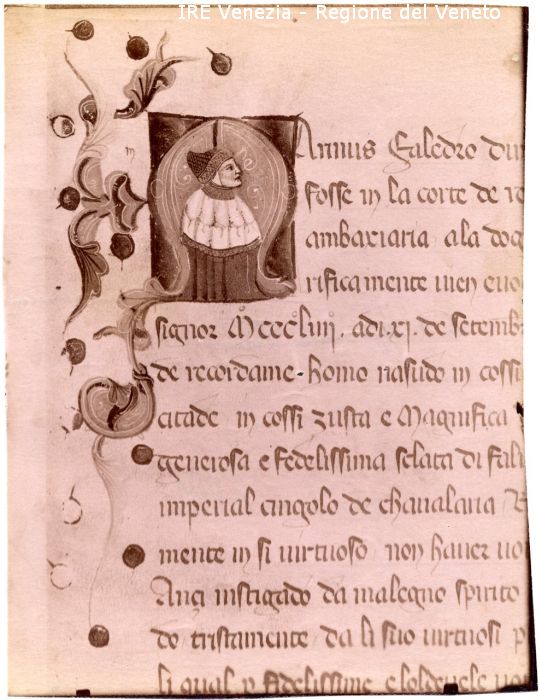 IRE Venezia - Regione del Veneto
Arinus Faledro du
fosse in la corte de
ambaxiaria ala dog
rificamente
signor Mͦcccͦliiij. adi.xj. de setemb
de recordame. homo nasudo in cossi
citade in cossi zusta e Magnifica
generosa e fedelissima sclata di Fali
imperial cingolo de chavalaria
mente in si virtuoso non haver
Anci instigado da malegno spirito
do tristamente da li suo virtuosi p
li qual p fidelissime e loldevele